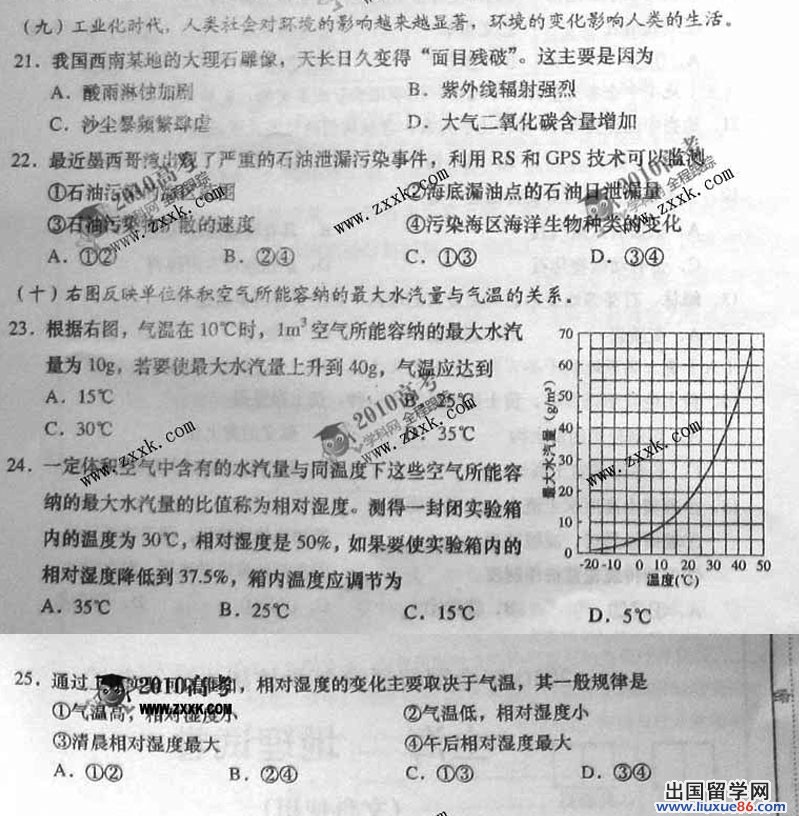 （九）工业化时代，人类社会对环境的影响越来越显著，环境的变化影响人类的生活。
21．我国西南某地的大理石雕像，天长日久变得“面目残破”。这主要是因为
A．酸雨淋蚀加剧 B．紫外线辐射强烈
C．沙尘暴频繁肆虐 D．大气二氧化碳含量增加
22．最近墨西哥湾出现了严重的石油泄漏污染事件，利用 RS 和 GPS 技术可以监测
①石油污染 围 ②海底漏油点的石油日泄漏量
③石油污染 散的速度 ④污染海区海洋生物种类的变化
A．①② B．②④ C．①③ D．③④
（十）右图反映单位体积空气所能容纳的最大水汽量与气温的关系。
23．根据右图，气温在 10℃时，1m³空气所能容纳的最大水汽
量为 10g，若要使最大水汽量上升到 40g，气温应达到
A．15℃ B．25℃
C．30℃ D．35℃
24．一定体积空气中含有的水汽量与同温度下这些空气所能容
纳的最大水汽量的比值称为相对湿度。测得一封闭实验箱
内的温度为 30℃，相对湿度是 50%，如果要使实验箱内的
相对湿度降低到 37.5%，箱内温度应调节为
A．35℃ B．25℃ C．15℃ D．5℃
最大水汽量 (g/m³)
70
60
50
40
30
20
10
0
-20 -10 0 10 20 30 40 50
温度(℃)
25．通过 ，相对湿度的变化主要取决于气温，其一般规律是
①气温高，相对湿度小 ②气温低，相对湿度小
③清晨相对湿度最大 ④午后相对湿度最大
A．①② B．②④ C．①③ D．③④
2010高考
学科网 全程跟踪
www.zxxk.com
2010高考
www.zxxk.com
2010高考
学科网 全程跟踪
www.zxxk.com
www.zxxk.com
2010高考
WWW.ZXXK.COM
出国留学网
www.liuxue86.com